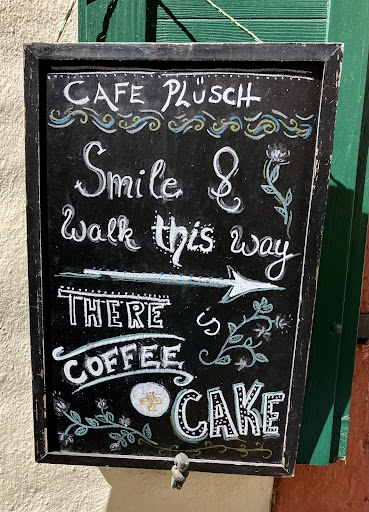 CAFE PLÜSCH
Smile &
Walk this way
THERE is
COFFEE
+ CAKE